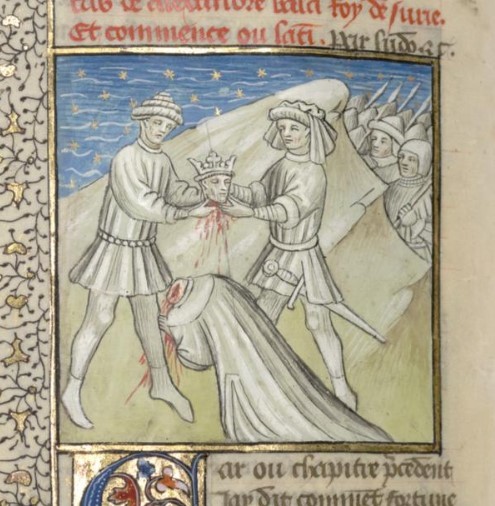 de alexandre bala roy de surie.
Et commence ou lati.
Car ou chapitre pcedent
Jay dit commet fortune